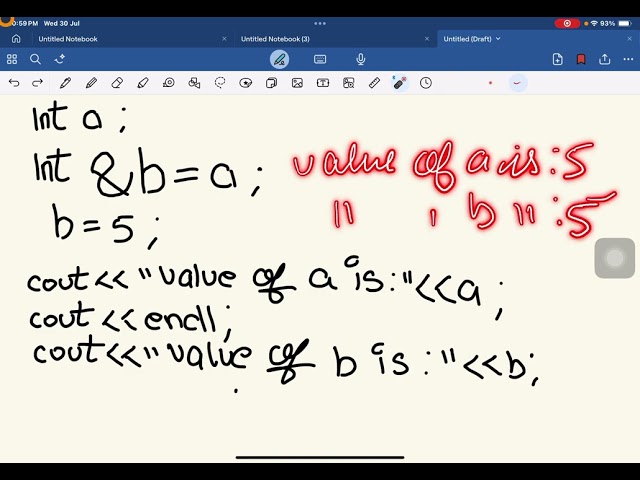 0:59 PM Wed 30 Jul
93%
Untitled Notebook
Untitled Notebook (3)
Untitled (Draft)
Int a ;
Int &b = a ;
b = 5 ;
value of a is : 5
" " b " : 5
cout << "value of a is : " << a ;
cout << endl ;
cout << " value of b is : " << b ;